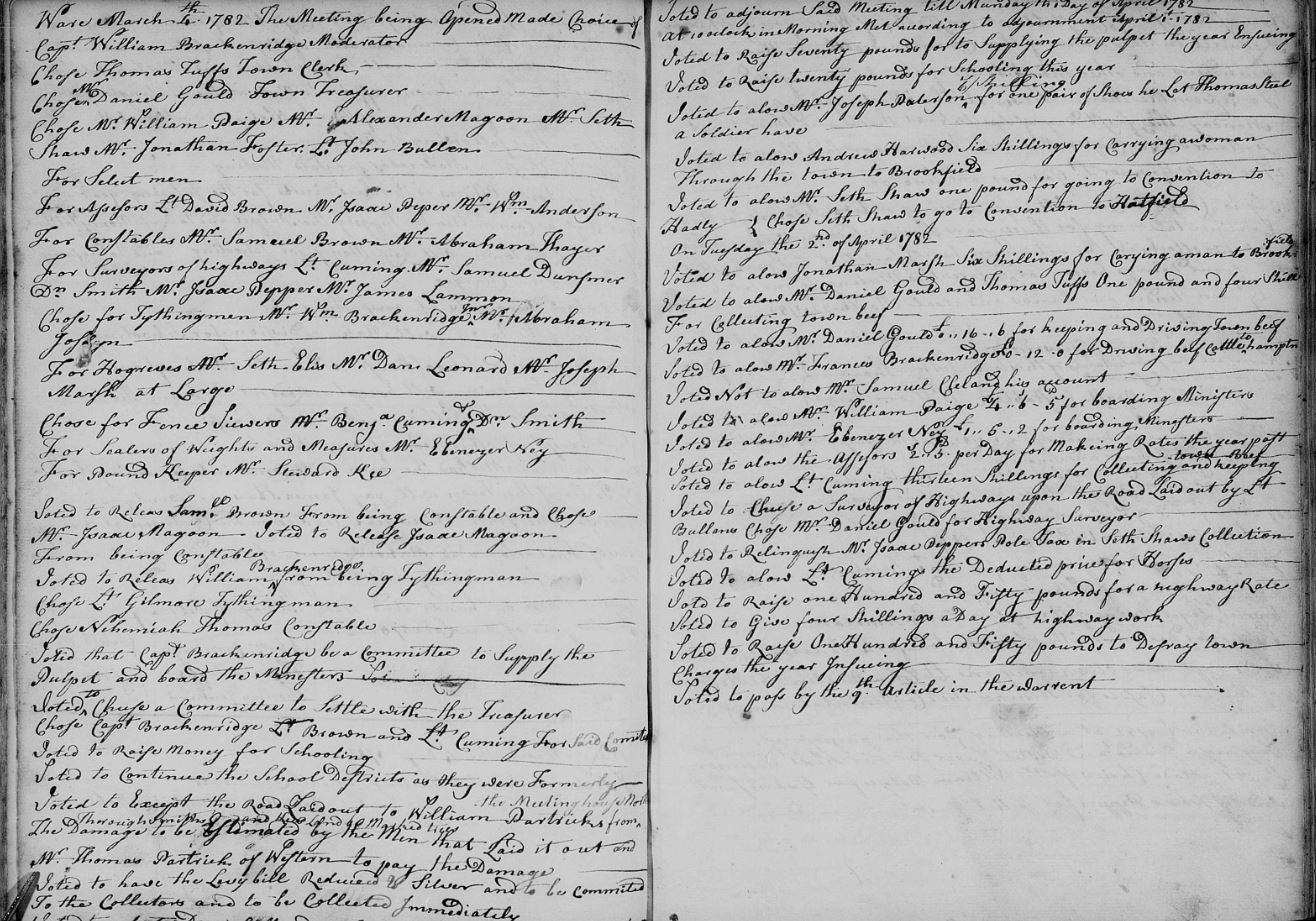 Ware March 4th 1782 The Meeting being Opened Made Choice of
Capt William Brackenridge Moderator
Chose Thomas Tuffs Town Clerk
Chose Mr Daniel Gould Town Treasurer
Chose Mr William Paige Mr Alexander Magoon Mr Seth
Shaw Mr Jonathan Foster Lt John Bullen
For Select men
For Assesors Lt David Brown Mr Isaac Peper Mr Wm Anderson
For Constables Mr Samuel Brown Mr Abraham Thayer
For Surveyors of highways Lt Cuming Mr Samuel Dunsmer
Dn Smith Mr Isaac Pepper Mr James Lammon
Chose for Tythingmen Mr Wm Brackenridge Jnr Mr Abraham
Joslyn
For Hogreves Mr Seth Elis Mr Danl Leonard Mr Joseph
Marsh at Large
Chose for Fence Viewers Mr Benja Cuming & Dn Smith
For Sealers of Weights and Measures Mr Ebenezer Ney
For Pound Keeper Mr Steward Kee
Voted to Releas Saml Brown From being Constable and Chose
Mr Isaac Magoon Voted to Release Isaac Magoon
From being Constable
Voted to Releas William Brackenridge from being Tythingman
Chose Lt Gilmore Tythingman
Chose Nehemiah Thomas Constable
Voted that Capt Brackenridge be a Committee to Supply the
Pulpet and board the Ministers
Voted to Chuse a Committee to Settle with the Treasurer
Chose Capt Brackenridge Lt Brown and Lt Cuming For Said Comite
Voted to Raise Money for Schooling
Voted to Continue the School Destricts as they were Formerly
Voted to Except the Road Laidout to William Partricks from the Meetinghouse
The Damage to be Estimated by the Men that Laid it out and
Mr Thomas Partrick of Western to pay the Damage
Voted to have the Levy bill Reduced to Silver and to be Commited
To the Collectors and to be Collected Immediately
Voted to adjourn Said Meeting till Munday th 1 Day of April 1782
At 10 oclock in Morning Met acording to adjournment April 1st 1782
Voted to Raise Seventy pounds for to Supplying the pulpet the year Ensueing
Voted to Raise twenty pounds for Schooling this year
Voted to alow Mr Joseph Paterson 6/ Shilling for one pair of Shoes he Let Thomas Steel
a Soldier have
Voted to alow Andrew Harwood Six Shillings for Carrying a woman
Through the town to Brookfield
Voted to alow Mr Seth Shaw one pound for going to Convention to
Hadly } Chose Seth Shaw to go to Convention to Hatfield
On Tuesday the 2nd of April 1782
Voted to alow Jonathan Marsh Six Shillings for Carying a man to Brookfield
Voted to alow Mr Daniel Gould and Thomas Tuffs One pound and four Shill
For Collecting town beef
Voted to alow Mr Daniel Gould £0..16..6 for keeping and Driving Town beef
Voted to alow Mr Frances Brackenridge £0-12-0 for Driving beef Cattle to hamptn
Voted Not to alow Mr Samuel Cleland his acount
Voted to alow Mr William Paige £4..6-5 for boarding Ministers
Voted to alow Mr Ebenezer Ney £1..5..2 for boarding Minesters
Voted to alow the Assesors 2/5 per Day for Makeing Rates the year past
Voted to alow Lt Cuming thirteen Shillings for Collecting and keeping town Beef
Voted to Chuse a Survayor of Highways upon the Road Laid out by Lt
Bullons Chose Mr Daniel Gould for Highway Surveyor
Voted to Relinquish Mr Isaac Peppers Pole Tax in Seth Shaws Collection
Voted to alow Lt Cumings the Deducted price for Horses
Voted to Raise one Hundred and Fifty pounds for a highway Rate
Voted to Give four Shillings a Day at highway work
Voted to Raise One Hundred and Fifty pounds to Defray town
Charges the year Insueing
Voted to pass by the 9th Article in the warrent